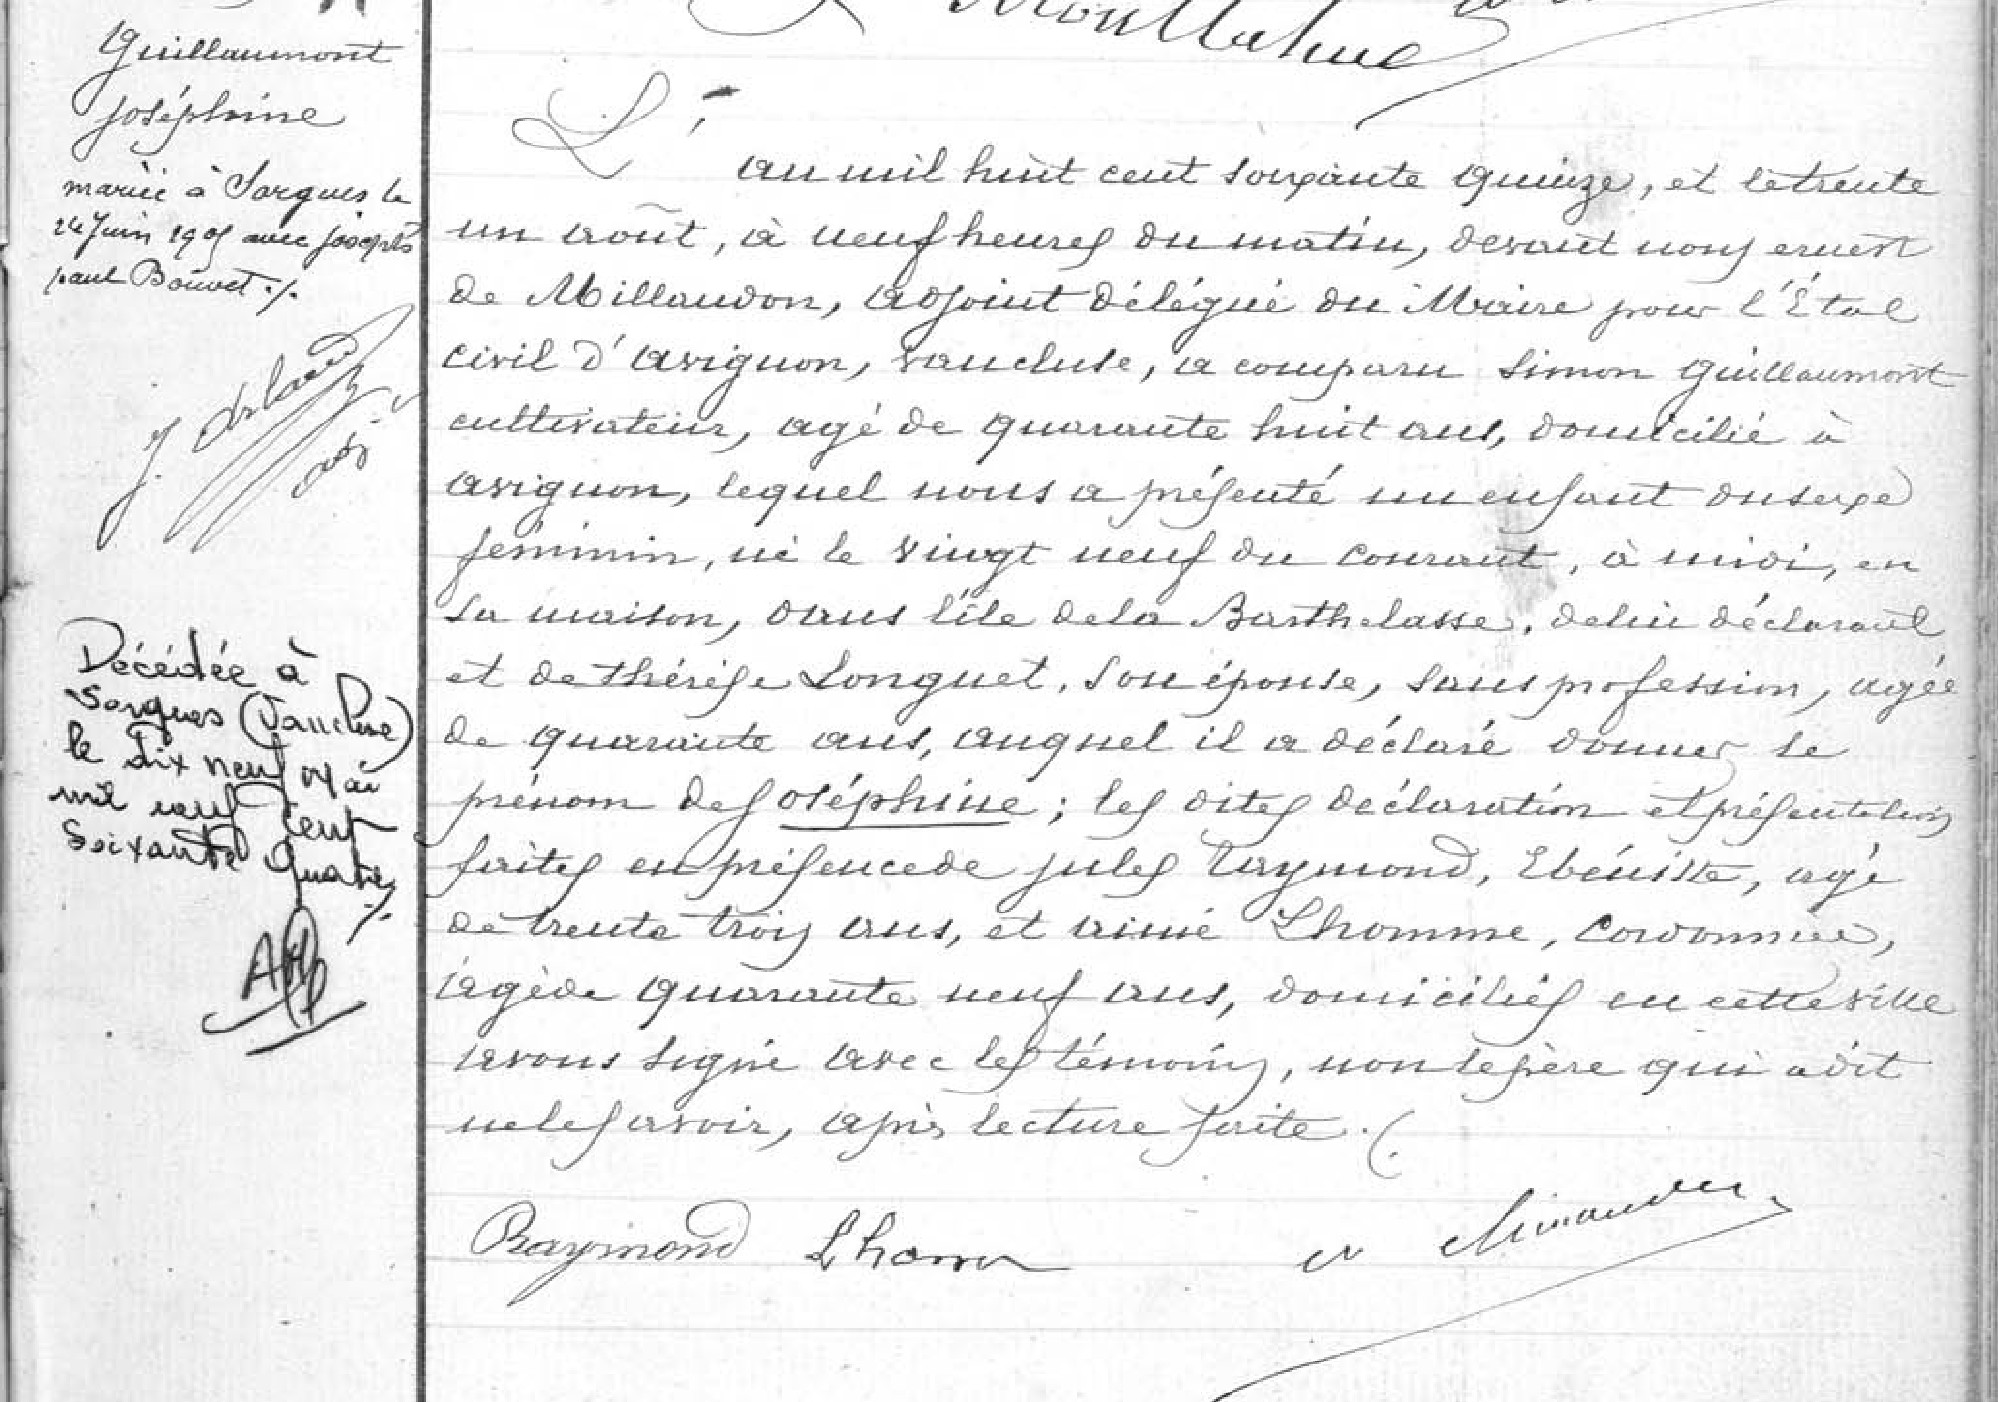 Guillaumont
Joséphine
mariée à Sorgues le
24 Juin 1905 avec Joseph
paul Bouvet ./.
adj
Décédée à
Sorgues (Vaucluse)
le dix neuf Mai
mil neuf cent
soixante quatre
./.
L'
an mil huit cent soixante quinze, et le trente
un août, à neuf heures du matin, devant nous ernest
de Millaudon, adjoint délégué du Maire pour l'État
civil d'avignon, vaucluse, a comparu Simon Guillaumont
cultivateur, agé de quarante huit ans, domicilié à
avignon, lequel nous a présenté un enfant du sexe
féminin, né le vingt neuf du courant, à midi, en
sa maison, dans l'île de la Barthelasse, de lui déclarant
et de thérèse Longuet, son épouse, sans profession, agée
de quarante ans, auquel il a déclaré donner le
prénom de Joséphine ; les dites déclaration et présentation
faites en présence de jules Raymond, Ebéniste, agé
de trente trois ans, et aimé Lhomme, cordonnier,
agé de quarante neuf ans, domiciliés en cette ville
avons signé avec les témoins, non le père qui a dit
ne le savoir, après lecture faite ./.
Raymond Lhomme